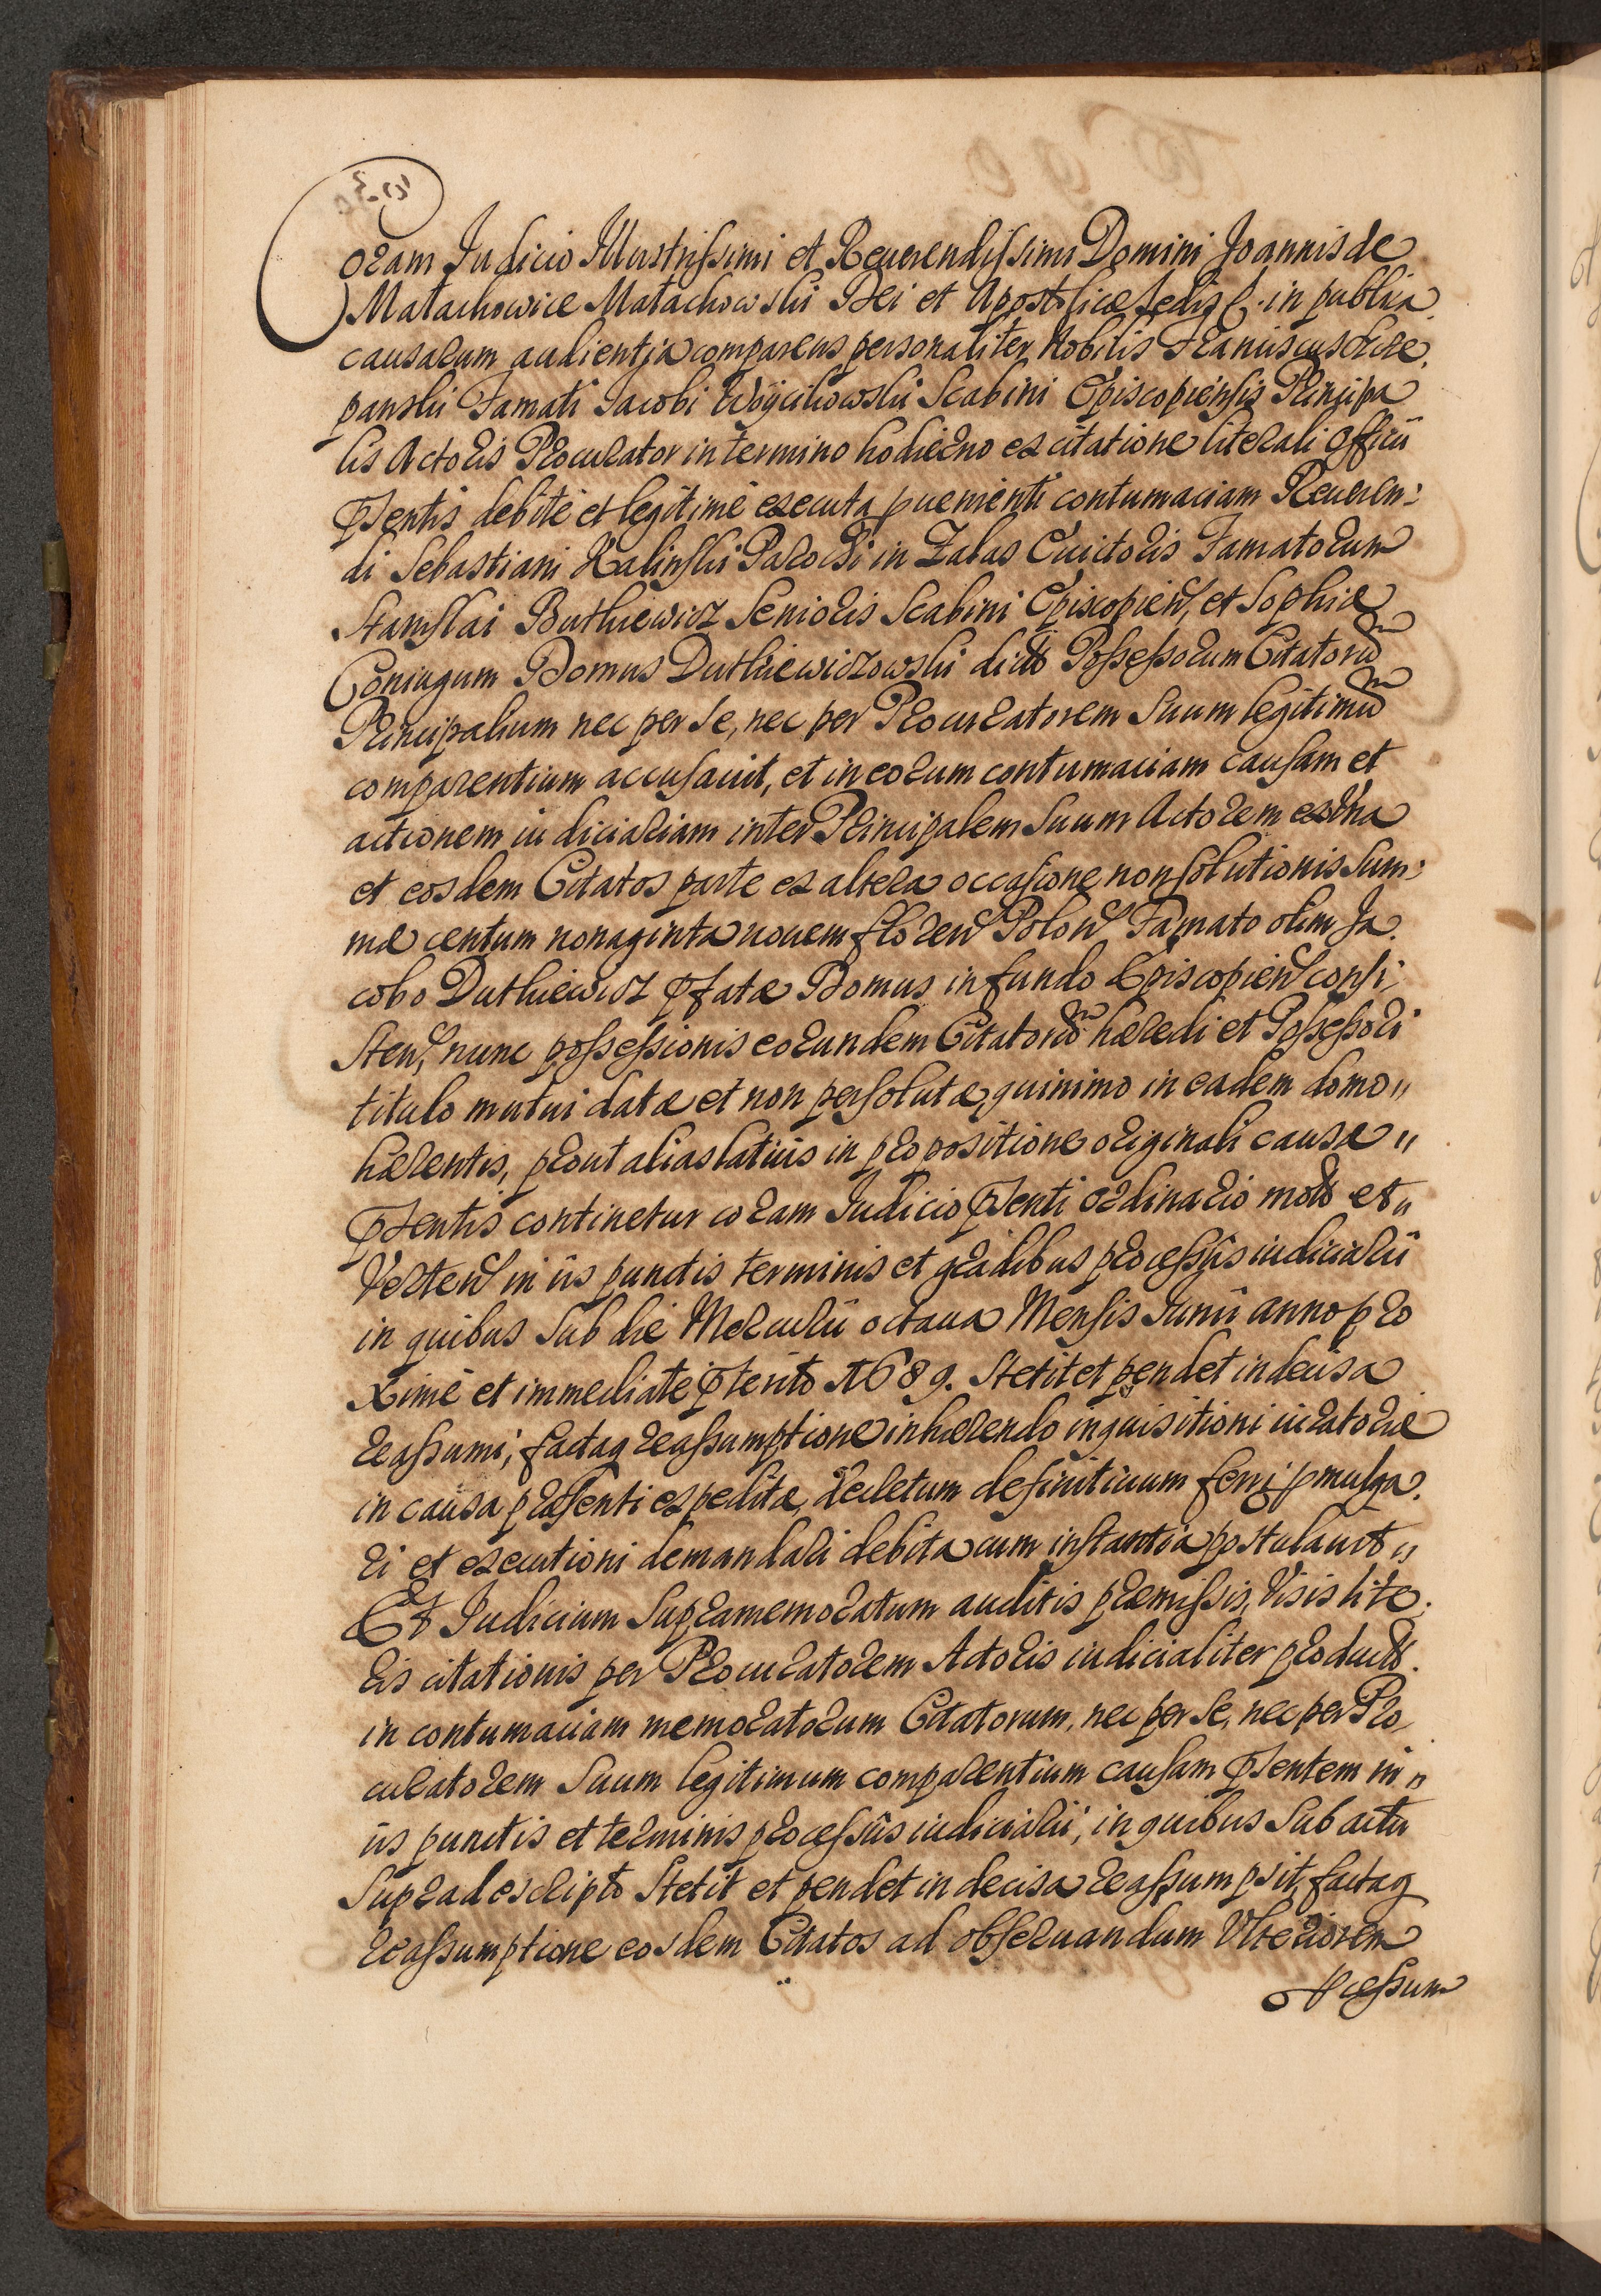 Coram Iudicio Illustrissimi et Reuerendissimi Domini Joannis de
Małachowice Małachowski Dei et Apostolicæ sedis &. in publica
causarum audientia comparens personaliter Nobilis Franciscus
panski Famati Iacobi Woyciihowski Scabini Episcopiensis Principa
lis Actoris Procurator in termino hodierno ex citatione literali officii
pſentis debitè et legitimè executa puenienti contumaciam Reueren:
di Sebastiani Kalinski Parochi in Zabas Euictoris Famatorum
Stanislai Buthiewicz Senioris Scabini Episcopien, et Sophiæ
Coniugum Domus Duthiewiczowski dictæ Possessorum Citatorũ
Principalium nec per se, nec per Procuratorem suum legitimũ
comparentium accusauit, et in eorum contumaciam causam et
actionem iudiciariam inter Principalem suum Actorem ex vna
et eosdem Citatos parte ex altera occasione non solutionis sum:
mæ centum nonaginta nouem floren Polon Famato olim Ja
cobo Duthiewicz pfatæ Domus in fundo Episcopien consi,
sten, nunc possessionis eorundem Citatorũ hæredi et Possessori
titulo mutui datæ et non persolutæ, quinimo in eadem domo "
hærentis, prout alias latius in propositione originali causæ "
pſentis continetur coram Iudicio pſenti ordinario motæ et "
Verten in iis punctis terminis et gradibus processus iudiciarii
in quibus sub die Mercurii octaua Mensis Iunii anno pro
ximè et immediatè pterito 1689. stetit et pendet indecisa
reassumi, factaq reassumptione inhærendo inquisitioni iuratoriæ
in causa præsenti expeditæ, decretum definitiuum ferri pmulga
ri et executioni demandari debita cum instantia postulauit "
Et Iudicium supramemoratum auditis præmissis, visis lite:
ris citationis per Procuratorem Actoris iudicialiter productis
in contumaciam memoratorum Citatorum, nec per se, nec per Pro
curatorem suum legitimum comparentium causam pſentem in "
iis punctis et terminis processus iudiciarii, in quibus sub actu
supradescripto stetit et pendet indecisa reassumpsit, factaq
reassumptione eosdem Citatos ad obseruandum Vlteriorem
pcessum